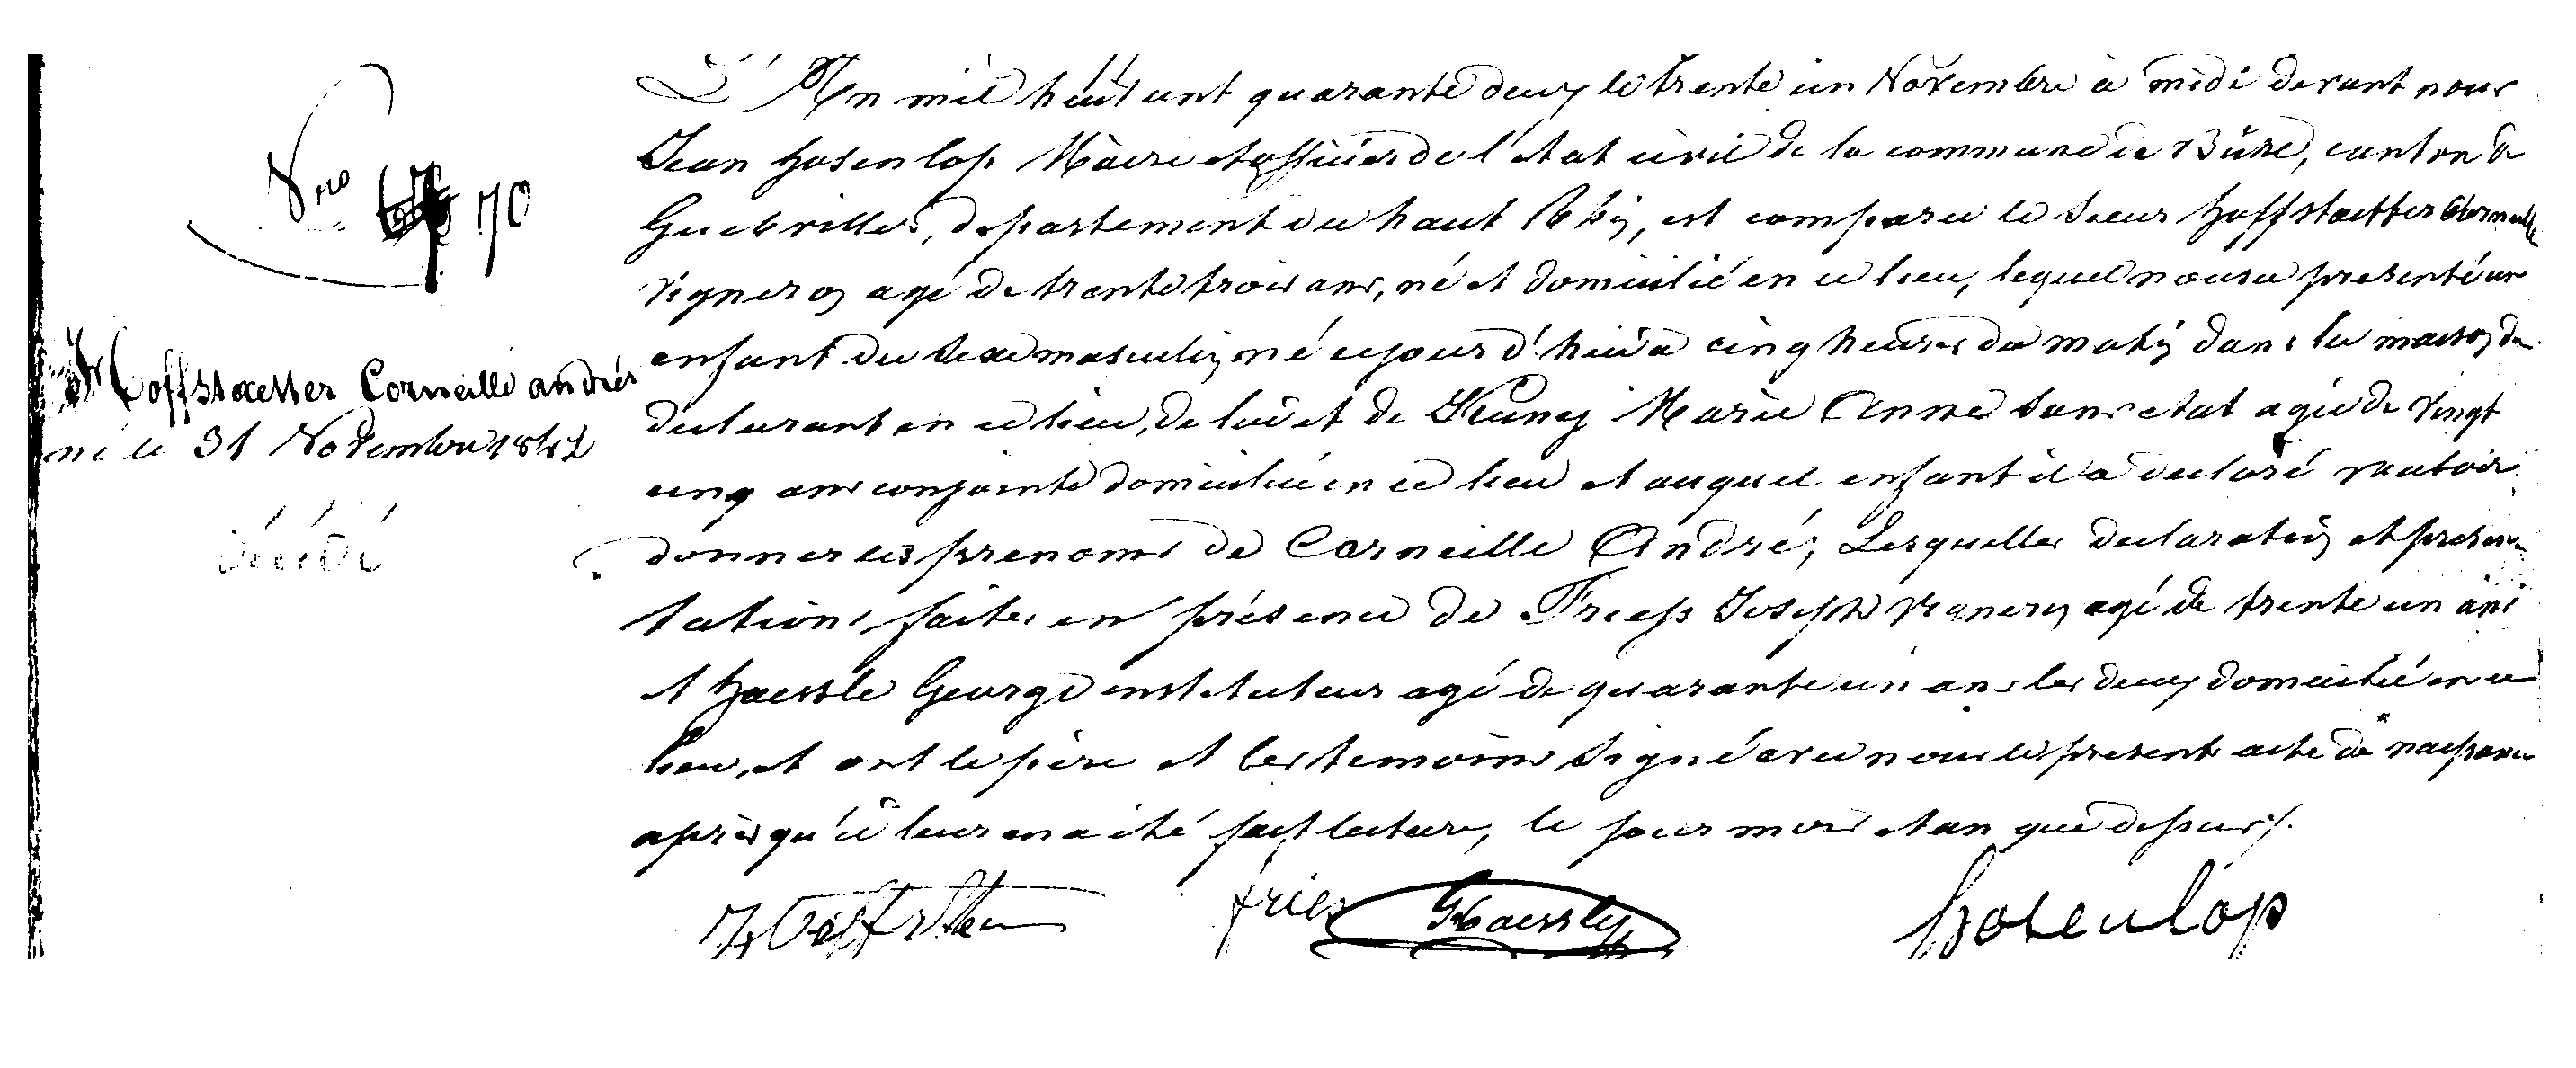 Nro 70
Hoffstaetter Corneille andrés
né le 31 Novembre 1842
décédé
L'An mil huit cent quarante deux le trente un Novembre à midi devant nous
Jean Hosenlop Maire et officier de l'état civil de la commune de Bühl, canton de
Guebviller, departement du haut Rhin, est comparu le Sieur Hoffstaetter Corneille
vigneron agé de trente trois ans, né et domicilié en ce lieu, lequel nous a presenté un
enfant du sexe masculin né cejourd'hui à cinq heures du matin dans la maison du
declarant en ce lieu, de lui et de Marie Anne sans etat agée de vingt
cinq ans conjointe domiciliée en ce lieu et auquel enfant il a declaré vouloir
donner les prenoms de Corneille André; Lesquelles declaration et presen
tations faites en présence de Friess Joseph vigneron agé de trente un ans
et Haessle George instituteur agé de quarante un ans les deux domicilié en ce
lieu, et ont le père et les temoins signé avec nous le present acte de naissance
après qu'il leur en a été fait lecture, le jour mois et an que dessus /.
fries Haessly Hosenlop